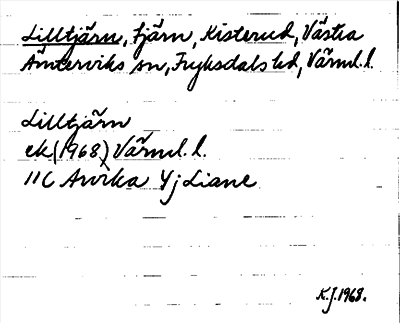 Lilltjärn, tjärn, Kisterud, Västra
Ämterviks sn, Fryksdals hd, Värml. l.
Lilltjärn
ek (1968) Värml. l.
11C Arvika 4j Liane
K.J. 1968.